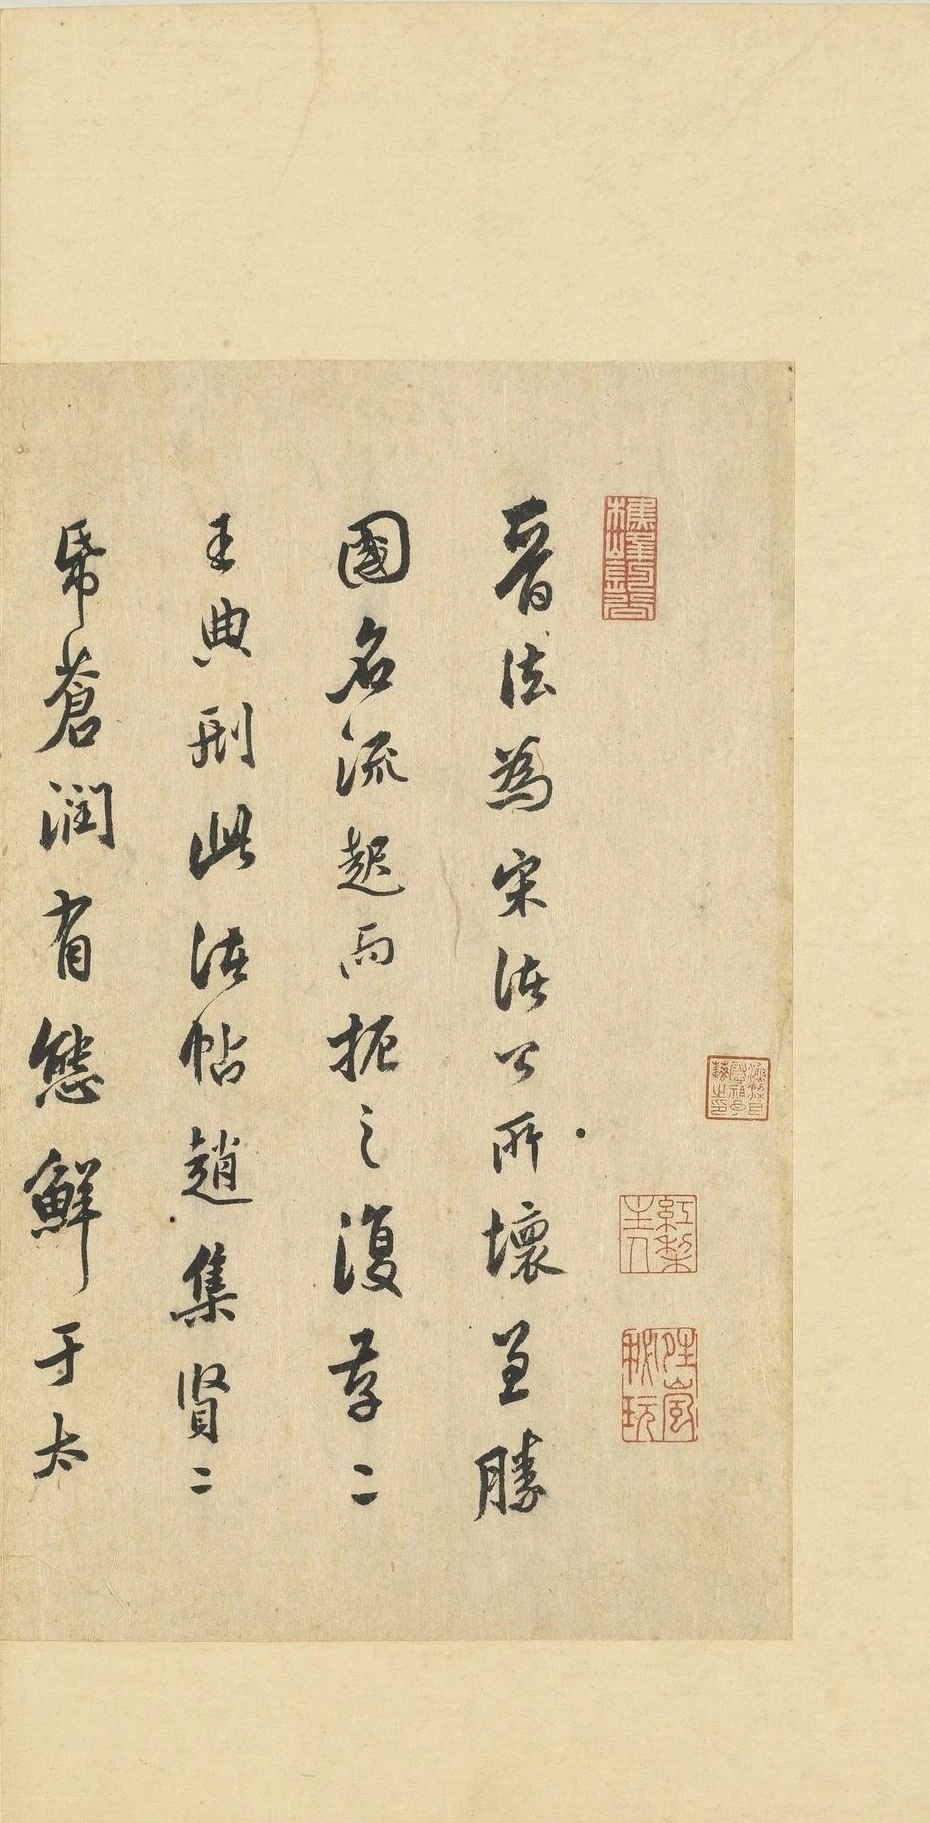 晉法為宋諸公所壞至勝
國名流起而振之復存二
王典刑此諸帖趙集賢二
帋蒼潤有態鮮于太
紅梨
主人